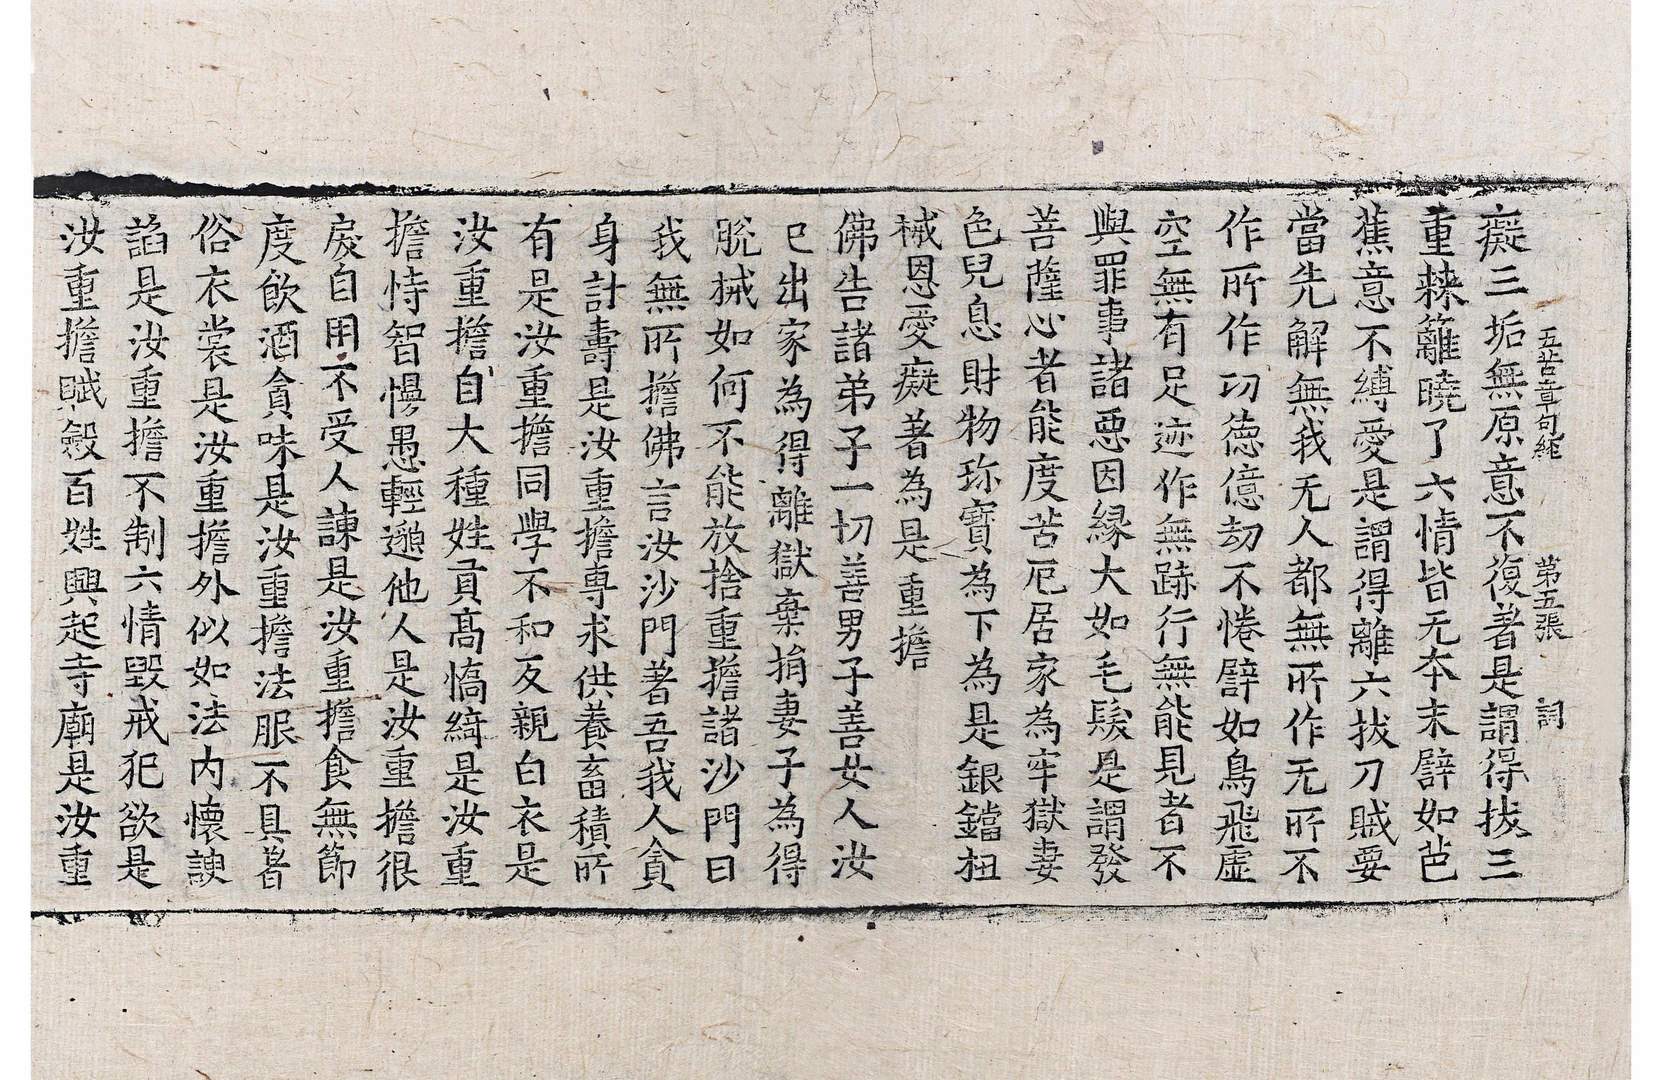 五苦章句經 第五張 詞
癡三垢無原意不復著是謂得拔三
重棘籬曉了六情皆无本末譬如芭
蕉意不縛愛是謂得離六拔刀賊要
當先解無我无人都無所作无所不
作所作功德億劫不惓譬如鳥飛虛
空無有足迹作無跡行無能見者不
與罪事諸惡因緣大如毛髮是謂發
菩薩心者能度苦厄居家為牢獄妻
色兒息財物珎寶為下為是銀鐺杻
械恩愛癡著為是重擔
佛告諸弟子一切善男子善女人汝
已出家為得離獄棄捐妻子為得
脫械如何不能放捨重擔諸沙門曰
我無所擔佛言汝沙門著吾我人貪
身計壽是汝重擔專求供養畜積所
有是汝重擔同學不和反親白衣是
汝重擔自大種姓貢高憍綺是汝重
擔恃智慢愚輕邈他人是汝重擔很
戾自用不受人諫是汝重擔食無節
度飲酒貪味是汝重擔法服不具著
俗衣裳是汝重擔外似如法內懷諛
諂是汝重擔不制六情毀戒犯欲是
汝重擔賦斂百姓興起寺廟是汝重